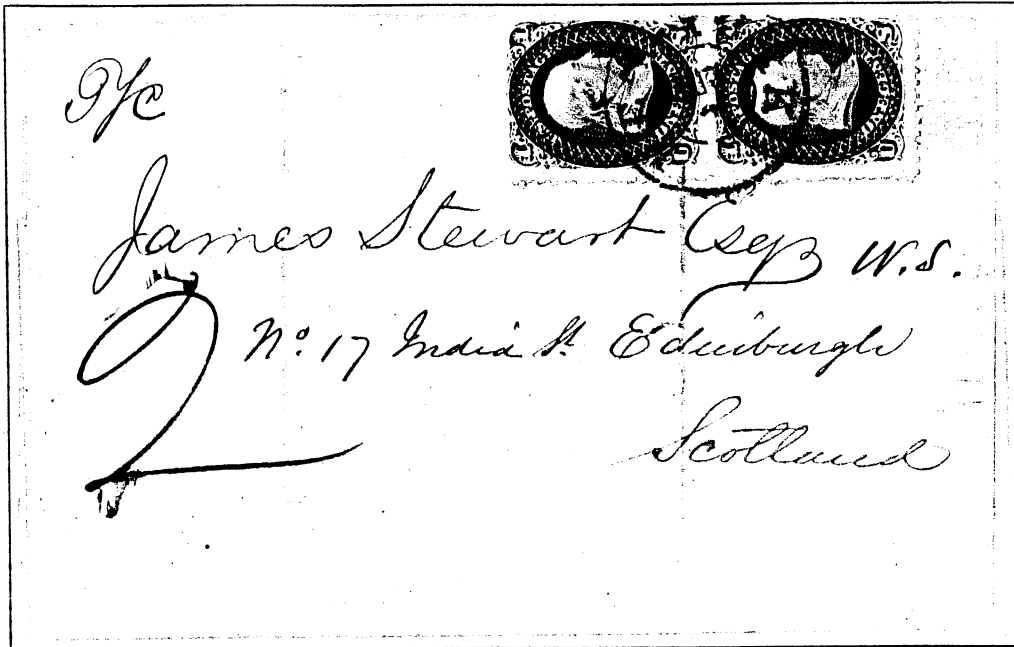 P/C
James Stewart Esqr W.S.
No. 17 India St. Edinburgh
Scotland
2